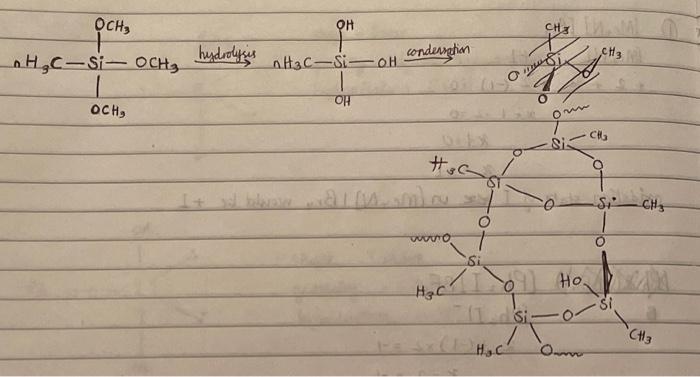 OCH3
nH3C—Si—OCH3
OCH3
hydrolysis
OH
nH3C—Si—OH
OH
condensation
CH3
Si
CH3
O
O
O
O
Si
CH3
O
O
H3C
Si
O
Si
CH3
O
O
O
Si
H3C
O
HO
Si
Si
O
CH3
H3C
O